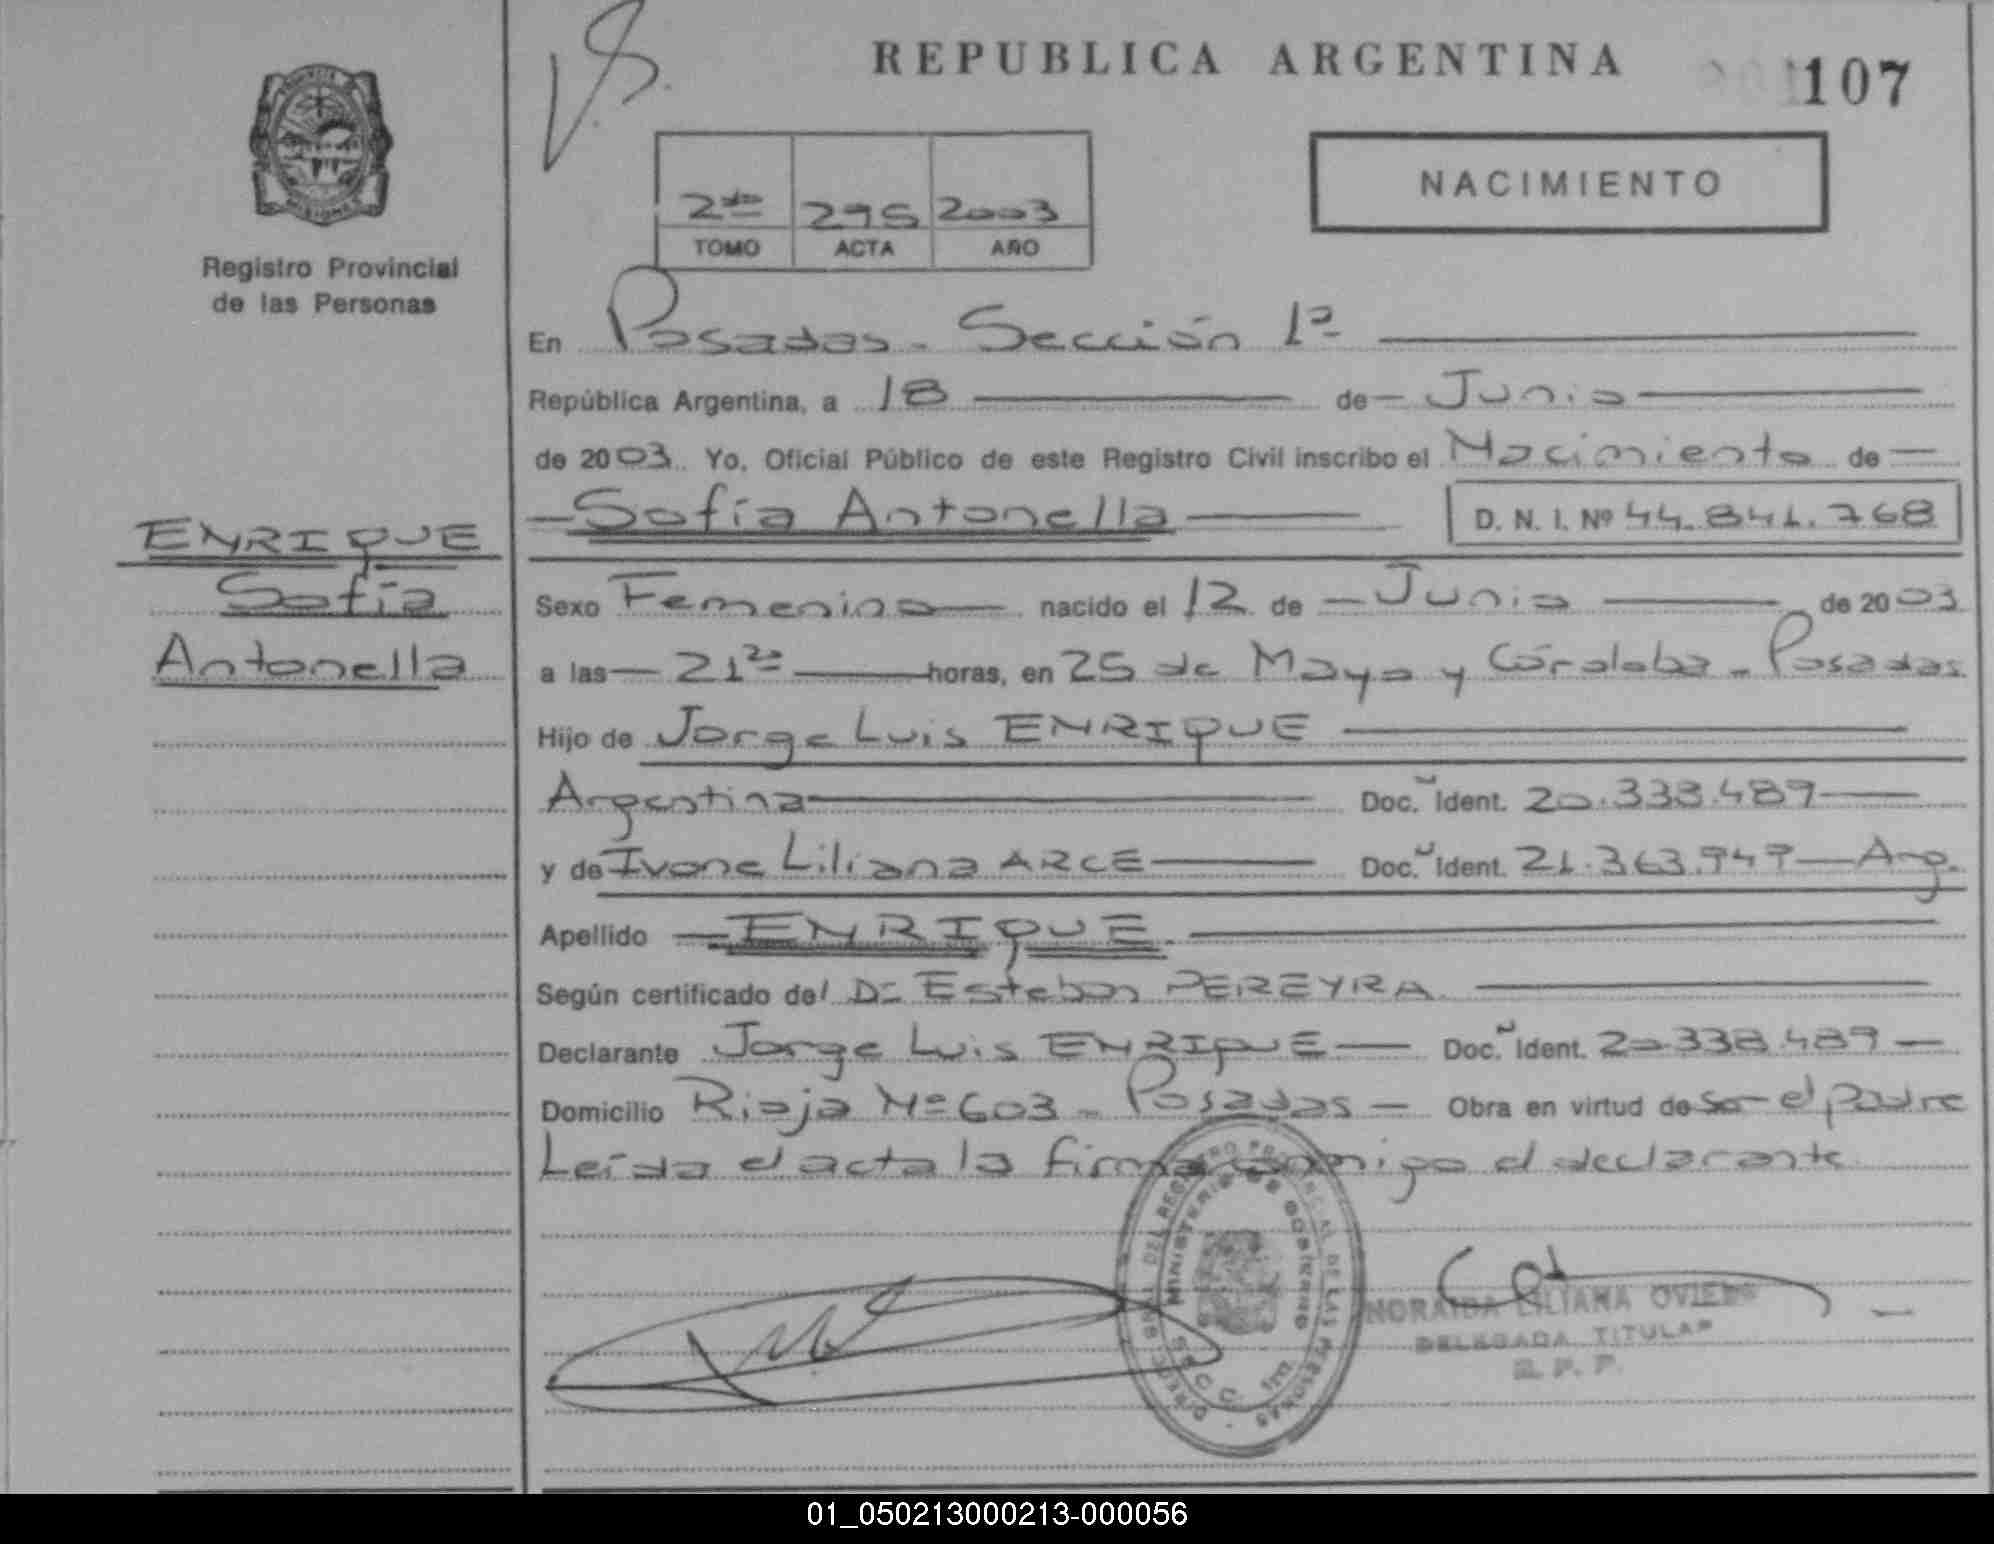 REPUBLICA ARGENTINA
107
NACIMIENTO
2do 295 2003
TOMO ACTA AÑO
Registro Provincial
de las Personas
En Posadas - Sección 1ª
República Argentina, a 18 de Junio
de 2003. Yo, Oficial Público de este Registro Civil inscribo el Nacimiento de
Sofía Antonella D. N. I. Nº 44.841.768
ENRIQUE
Sofía
Antonella
Sexo Femenino nacido el 12 de Junio de 2003
a las 21 20 horas, en 25 de Mayo y Córdoba - Posadas
Hijo de Jorge Luis ENRIQUE
Argentina Doc. Ident. 20.338.489
y de Ivone Liliana ARCE Doc. Ident. 21.363.947 Arg.
Apellido ENRIQUE
Según certificado del Dr Esteban PEREYRA
Declarante Jorge Luis ENRIQUE Doc. Ident. 20.338.489
Domicilio Rioja Nº 603 - Posadas - Obra en virtud de ser el padre
Leída el acta la firma conmigo el declarante
MINISTERIO DE GOBIERNO
NORAIDA LILIANA OVIEDO
DELEGADA TITULAR
R. P. P.
01_050213000213-000056